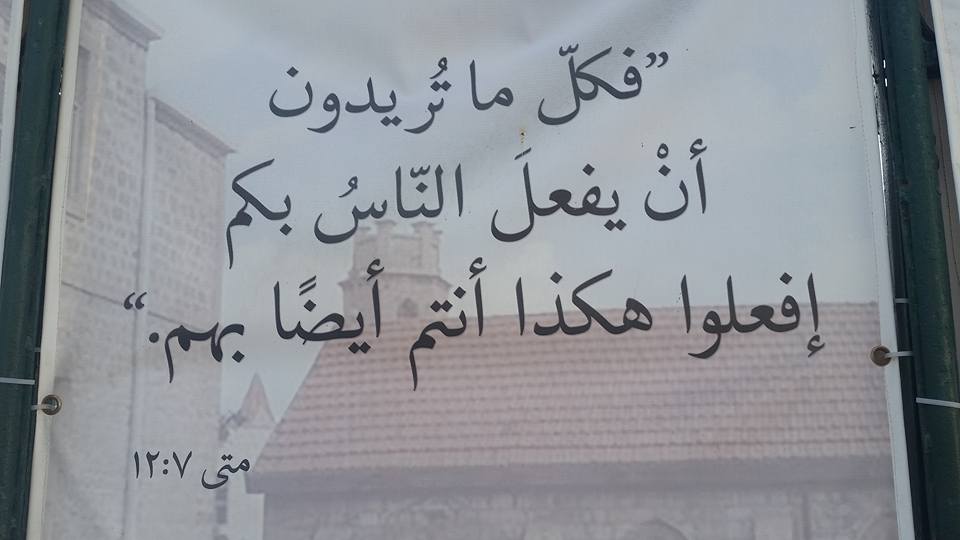 ”فكلّ ما تُريدون
أنْ يفعلَ النّاسُ بكم
إفعلوا هكذا أنتم أيضًا بهم.“
متى ١٢:٧